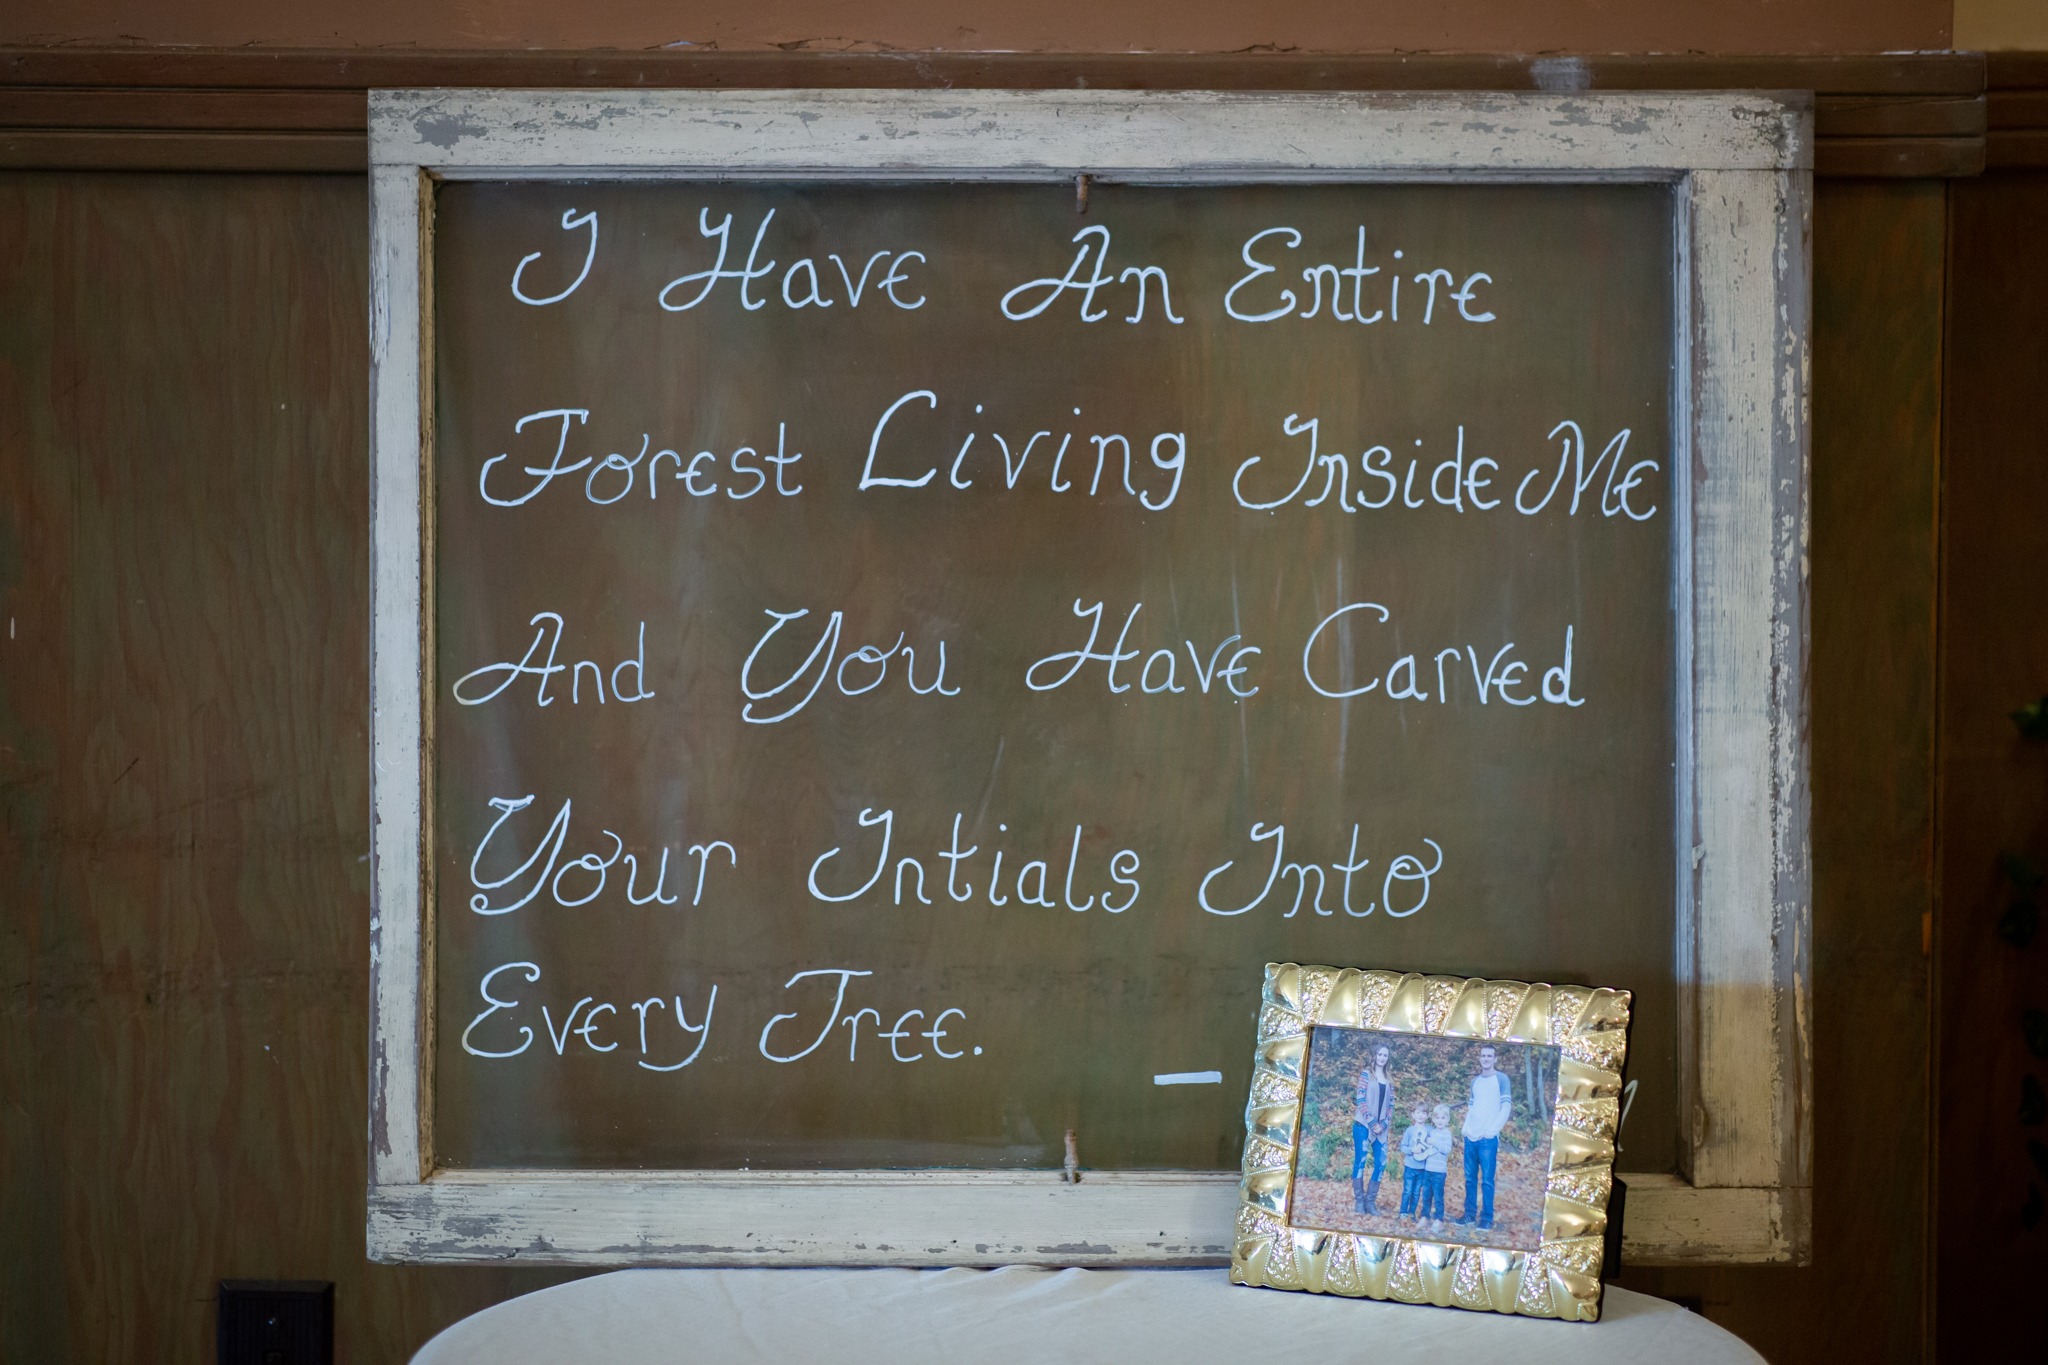 I Have An Entire
Forest Living Inside Me
And You Have Carved
Your Intials Into
Every Tree.